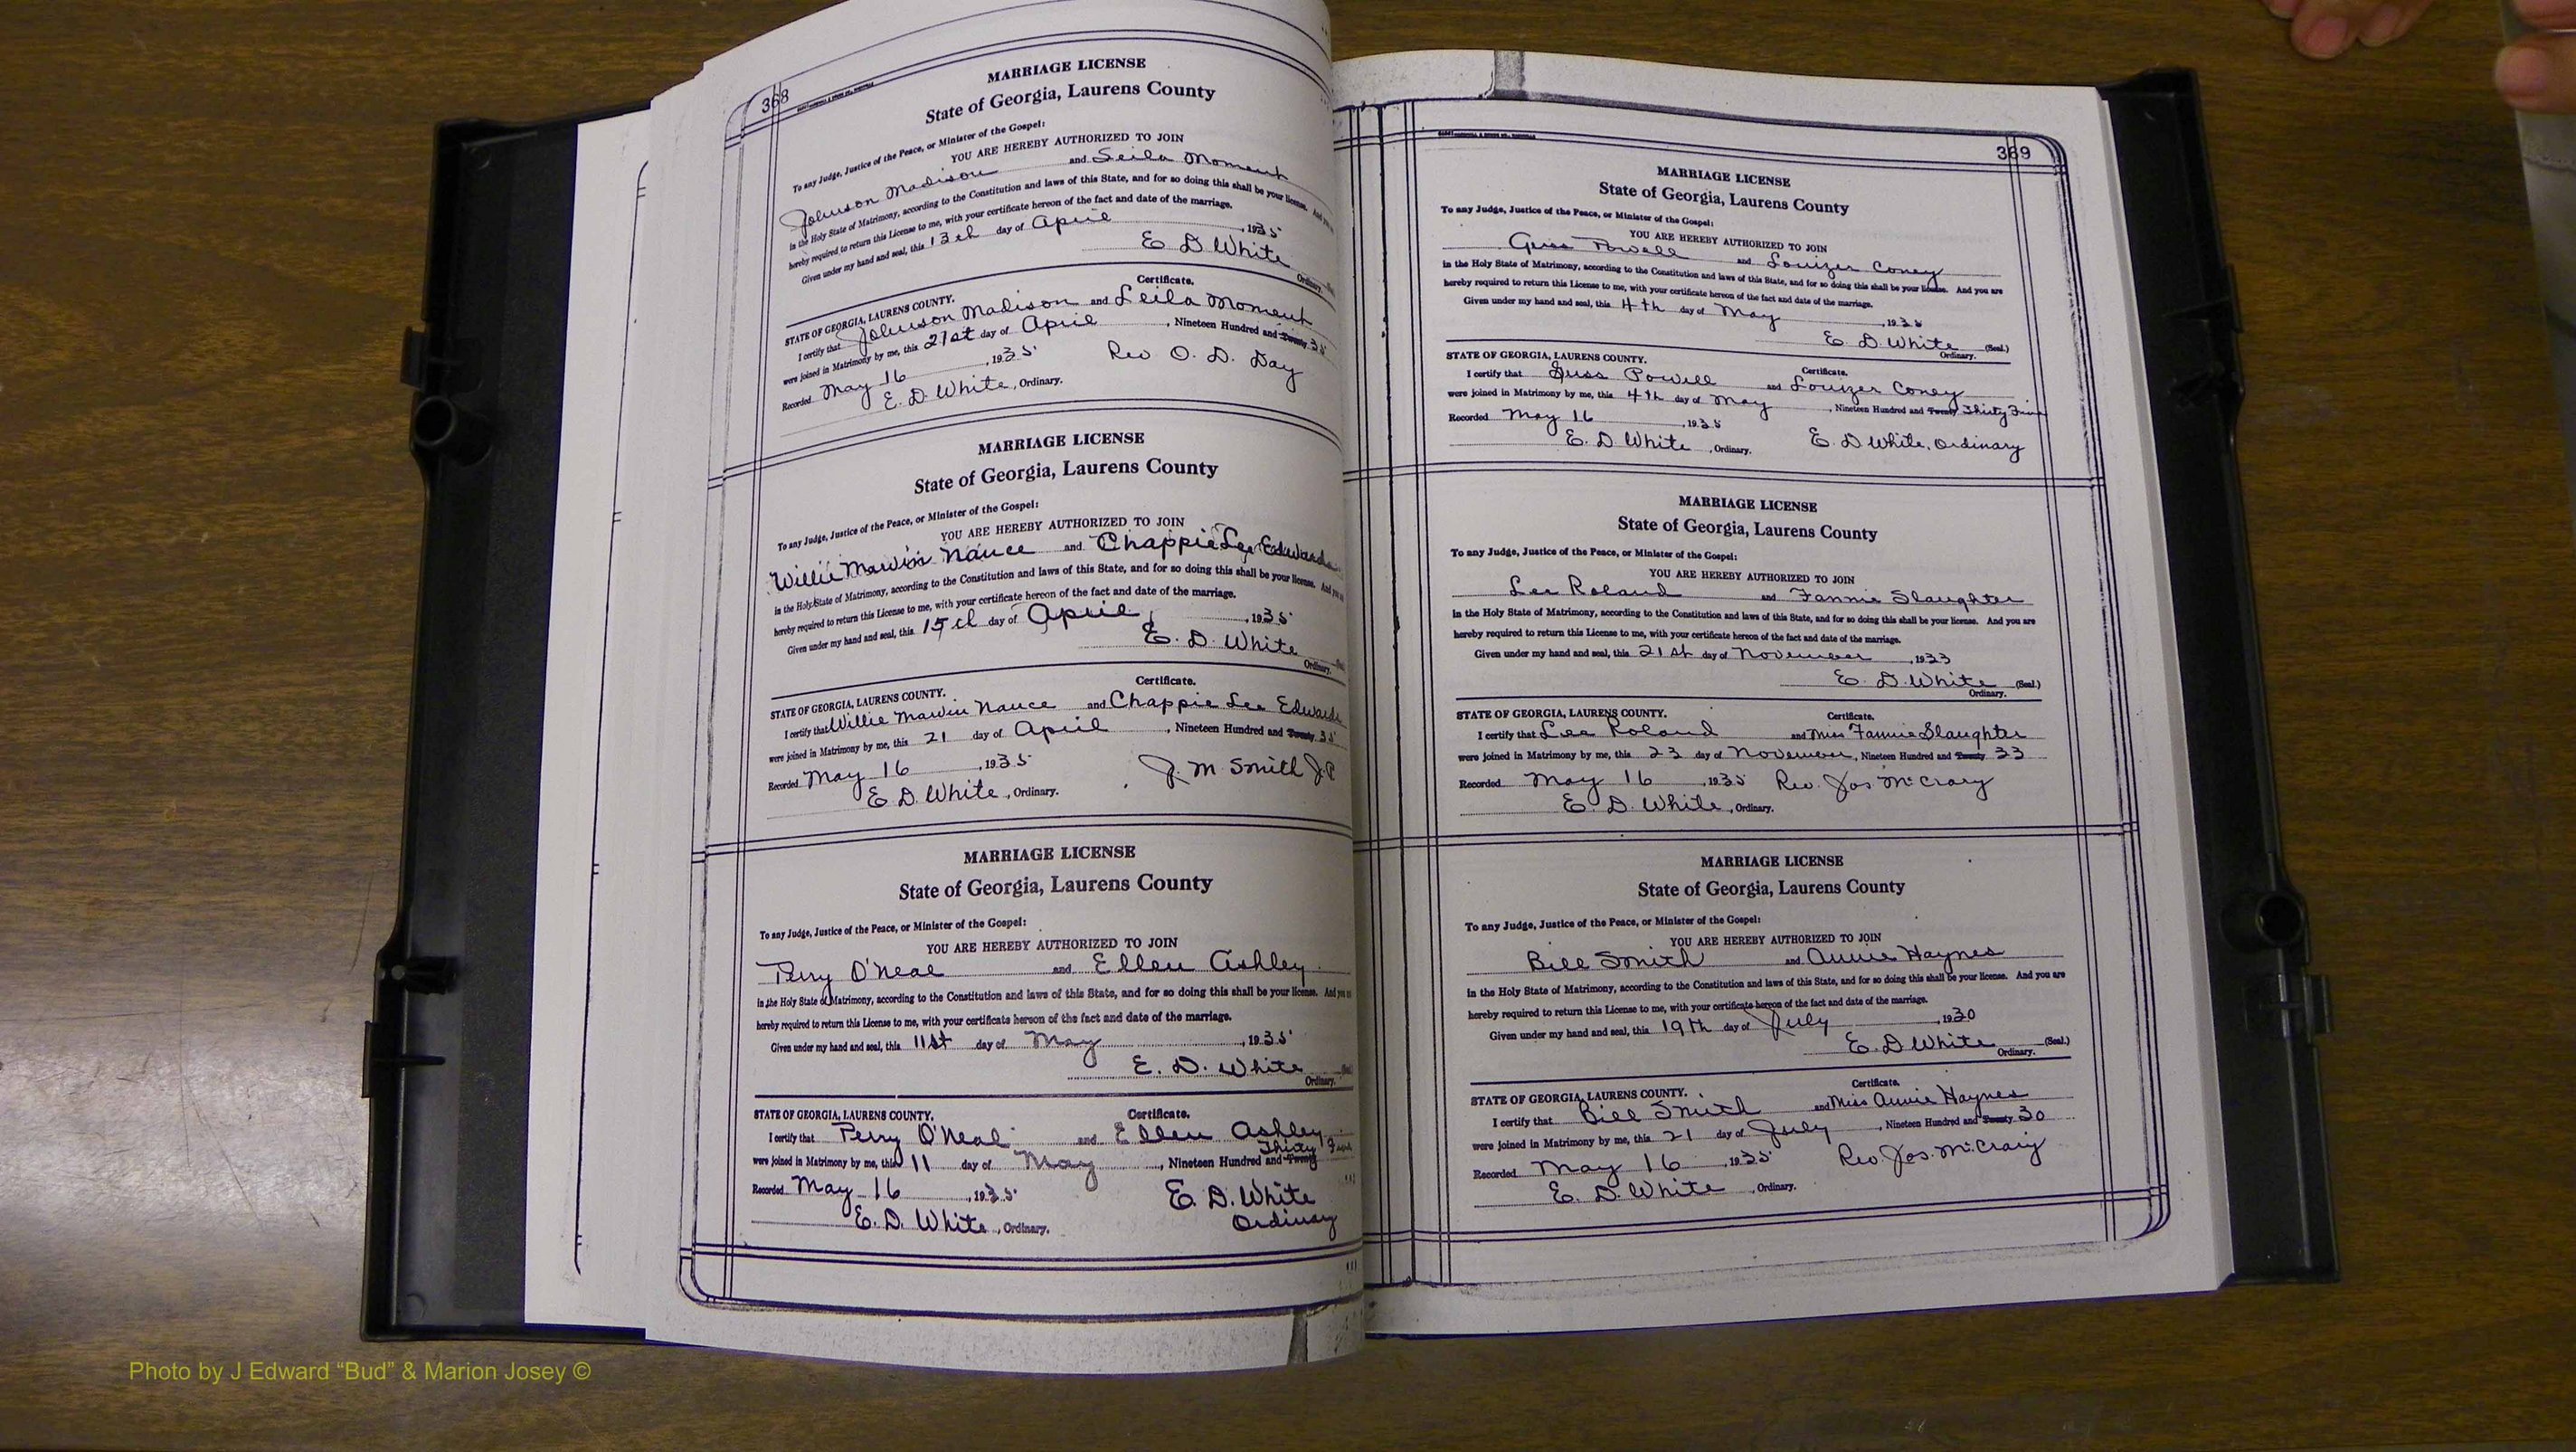 368
MARRIAGE LICENSE
State of Georgia, Laurens County
To any Judge, Justice of the Peace, or Minister of the Gospel:
YOU ARE HEREBY AUTHORIZED TO JOIN
Johnson Madison and Leila Moment
in the Holy State of Matrimony, according to the Constitution and laws of this State, and for so doing this shall be your license. And you
hereby required to return this License to me, with your certificate hereon of the fact and date of the marriage.
Given under my hand and seal, this 13th day of April, 1935
E D White
Ordinary.
STATE OF GEORGIA, LAURENS COUNTY. Certificate.
I certify that Johnson Madison and Leila Moment
were joined in Matrimony by me, this 21st day of April, Nineteen Hundred and Twenty 35
Recorded May 16, 1935 Rev O. D. Day
E. D. White, Ordinary.
MARRIAGE LICENSE
State of Georgia, Laurens County
To any Judge, Justice of the Peace, or Minister of the Gospel:
YOU ARE HEREBY AUTHORIZED TO JOIN
Willie Marvin Nance and Chappie Lee Edwards
in the Holy State of Matrimony, according to the Constitution and laws of this State, and for so doing this shall be your license. And you
hereby required to return this License to me, with your certificate hereon of the fact and date of the marriage.
Given under my hand and seal, this 15th day of April, 1935
E. D. White
Ordinary.
STATE OF GEORGIA, LAURENS COUNTY. Certificate.
I certify that Willie Marvin Nance and Chappie Lee Edwards
were joined in Matrimony by me, this 21 day of April, Nineteen Hundred and Twenty 35
Recorded May 16, 1935 J. M Smith J.P
E D. White, Ordinary.
MARRIAGE LICENSE
State of Georgia, Laurens County
To any Judge, Justice of the Peace, or Minister of the Gospel:
YOU ARE HEREBY AUTHORIZED TO JOIN
Perry O'Neal and Ellen Ashley
in the Holy State of Matrimony, according to the Constitution and laws of this State, and for so doing this shall be your license. And you
hereby required to return this License to me, with your certificate hereon of the fact and date of the marriage.
Given under my hand and seal, this 11st day of May, 1935
E. D. White
Ordinary.
STATE OF GEORGIA, LAURENS COUNTY. Certificate.
I certify that Perry O'Neal and Ellen Ashley
were joined in Matrimony by me, this 11 day of May, Nineteen Hundred and Twenty Thirty
Recorded May 16, 1935 E. D. White
E. D. White, Ordinary. Ordinary
369
MARRIAGE LICENSE
State of Georgia, Laurens County
To any Judge, Justice of the Peace, or Minister of the Gospel:
YOU ARE HEREBY AUTHORIZED TO JOIN
Guss Powell and Louizer Coney
in the Holy State of Matrimony, according to the Constitution and laws of this State, and for so doing this shall be your license. And you are
hereby required to return this License to me, with your certificate hereon of the fact and date of the marriage.
Given under my hand and seal, this 4th day of May, 1935
E. D. White (Seal.)
Ordinary.
STATE OF GEORGIA, LAURENS COUNTY. Certificate.
I certify that Guss Powell and Louizer Coney
were joined in Matrimony by me, this 4th day of May, Nineteen Hundred and Twenty Thirty Five
Recorded May 16, 1935
E. D. White, Ordinary. E. D White, Ordinary
MARRIAGE LICENSE
State of Georgia, Laurens County
To any Judge, Justice of the Peace, or Minister of the Gospel:
YOU ARE HEREBY AUTHORIZED TO JOIN
Lee Roland and Fannie Slaughter
in the Holy State of Matrimony, according to the Constitution and laws of this State, and for so doing this shall be your license. And you are
hereby required to return this License to me, with your certificate hereon of the fact and date of the marriage.
Given under my hand and seal, this 21st day of November, 1933
E. D. White (Seal.)
Ordinary.
STATE OF GEORGIA, LAURENS COUNTY. Certificate.
I certify that Lee Roland and Miss Fannie Slaughter
were joined in Matrimony by me, this 23 day of November, Nineteen Hundred and Twenty 33
Recorded May 16, 1935 Rev. Jos McCrary
E. D. White, Ordinary.
MARRIAGE LICENSE
State of Georgia, Laurens County
To any Judge, Justice of the Peace, or Minister of the Gospel:
YOU ARE HEREBY AUTHORIZED TO JOIN
Bill Smith and Annie Haynes
in the Holy State of Matrimony, according to the Constitution and laws of this State, and for so doing this shall be your license. And you are
hereby required to return this License to me, with your certificate hereon of the fact and date of the marriage.
Given under my hand and seal, this 19th day of July, 1930
E. D White (Seal.)
Ordinary.
STATE OF GEORGIA, LAURENS COUNTY. Certificate.
I certify that Bill Smith and Miss Annie Haynes
were joined in Matrimony by me, this 21 day of July, Nineteen Hundred and Twenty 30
Recorded May 16, 1935 Rev. Jos. McCrary
E. D. White, Ordinary.
Photo by J Edward “Bud” & Marion Josey ©